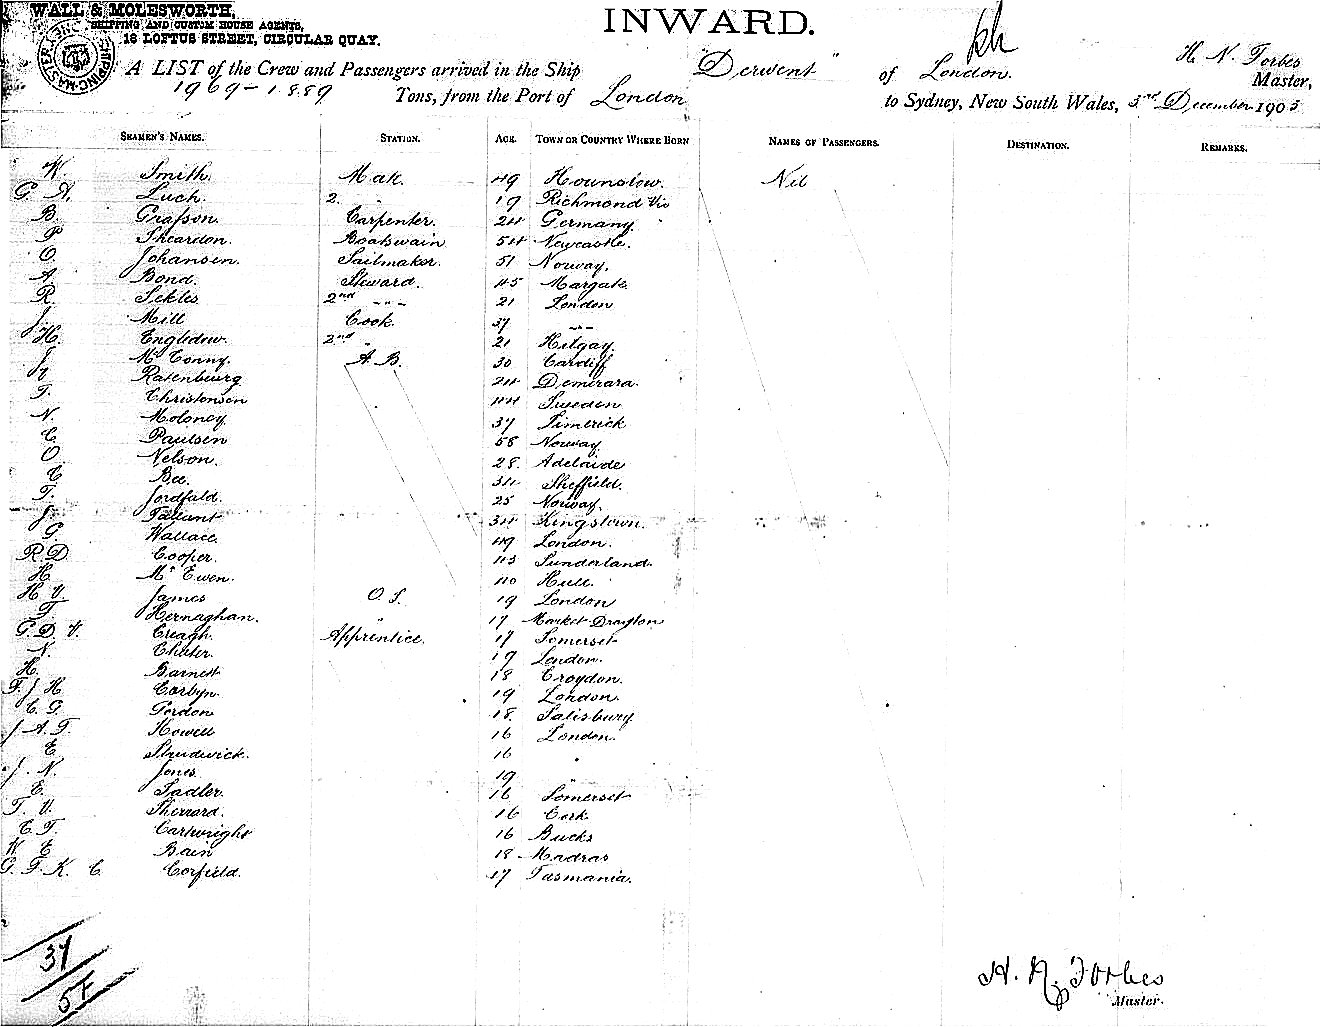 WALL & MOLESWORTH,
SHIPPING AND CUSTOM HOUSE AGENTS,
16 LOFTUS STREET, CIRCULAR QUAY.
INWARD.
A LIST of the Crew and Passengers arrived in the Ship "Derwent" of London. H. N. Forbes Master,
1969-1889 Tons, from the Port of London to Sydney, New South Wales, 3rd December 1903
SEAMEN'S NAMES. STATION. AGE. TOWN OR COUNTRY WHERE BORN NAMES OF PASSENGERS. DESTINATION. REMARKS.
W. Smith. Mate. 49 Hounslow. Nil
G. A. Luch. 2. " 19 Richmond Vic
B. Grafson. Carpenter. 24 Germany.
P. Sheardon. Boatswain 54 Newcastle.
O. Johansen. Sailmaker. 51 Norway.
A. Bond. Steward. 45 Margate.
R. Sekles 2nd " 21 London
J. Mill Cook. 37 "
H. Engledow. 2nd " 21 Hilgay.
J. McConny. A.B. 30 Cardiff
Ratenburg 24 Demirara.
T. Christensen 44 Sweden
N. Moloney. 37 Limerick
C. Paulsen 58 Norway
O. Nelson. 28. Adelaide
C. Bee. 34 Sheffield.
T. Jordfald. 25 Norway.
J. Tallant 34 Kingstown.
G. Wallace. 49 London.
R.D. Cooper. 43 Sunderland.
H. McEwen. 40 Hull.
H. V. James O.S. 19 London
T. Kernaghan. " 17 Market Drayton
G. D. V. Creagh. Apprentice. 17 Somerset
N. Chater. 19 London.
H. Barnett 18 Croydon.
F. J. H Corbyn. 19 London.
C. G. Gordon 18. Salisbury.
J. A. T. Howell 16 London.
E Strudwick. 16 "
J. N. Jones. 19 "
E. Sadler. 16 Somerset
T. V. Sherrard. 16 Cork
C. T. Cartwright 16 Bucks
W E Bain 18 Madras
G. F. K. C. Corfield. 17 Tasmania.
37
57
H. N. Forbes
Master.